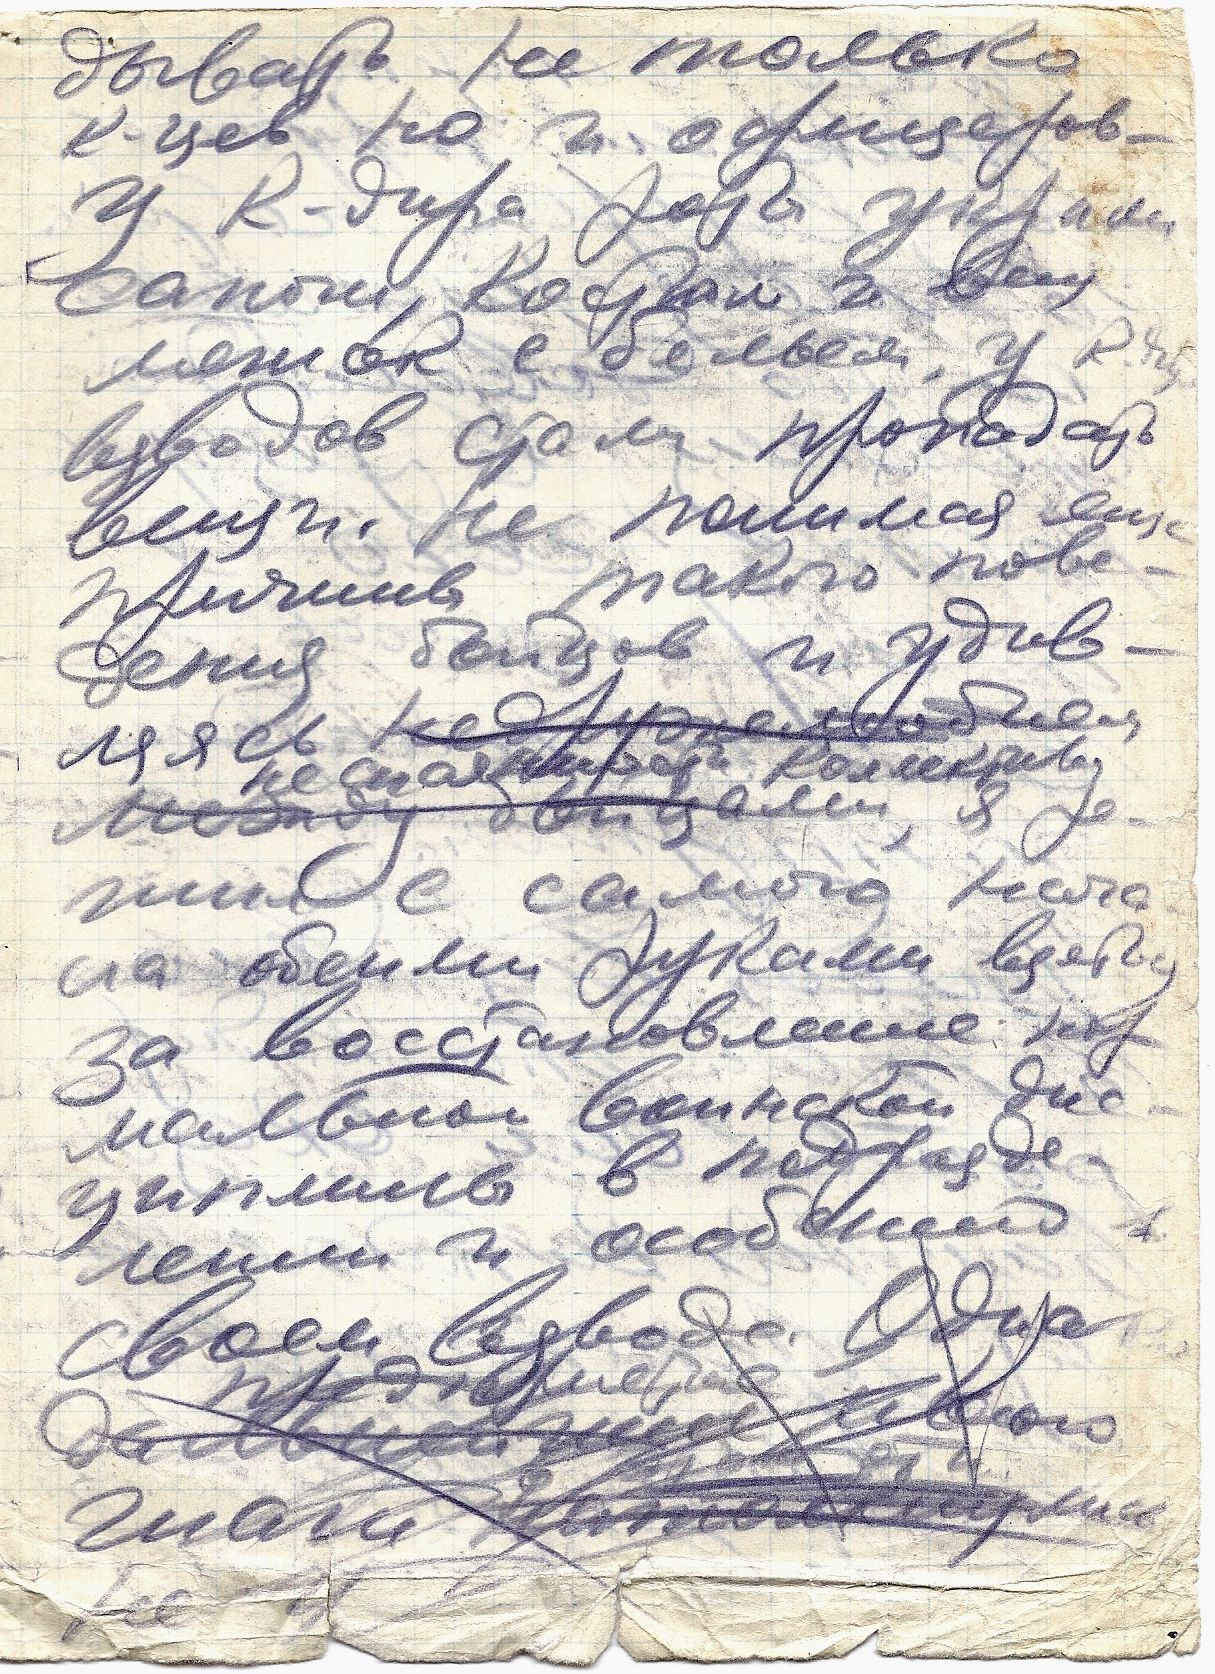 дывать не только
к-цев но и офицеров-
У к-дира роты украли
сапоги, костюм и вещ
мешок с бельем, у к-
взводов стали пропадать
вещи. Не понимая еще
причины такого пове-
дения бойцов и удив-
ляясь
неспаянности коллективу
между бойцами, я ре-
шил с самого нача
ла обеими руками взяться
за восстановление нор
мальной воинской дис-
циплины в подразде-
лении и особенно в
своем взводе. Одна
предпринятые
дальнейшии много
шаги
не